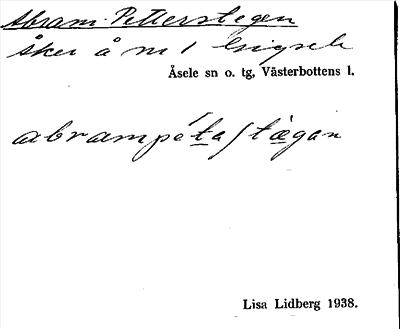 Abram-Petterstegen
åker å m 1
Åsele sn o. tg, Västerbottens l.
abrampétastǽgan
Lisa Lidberg 1938.